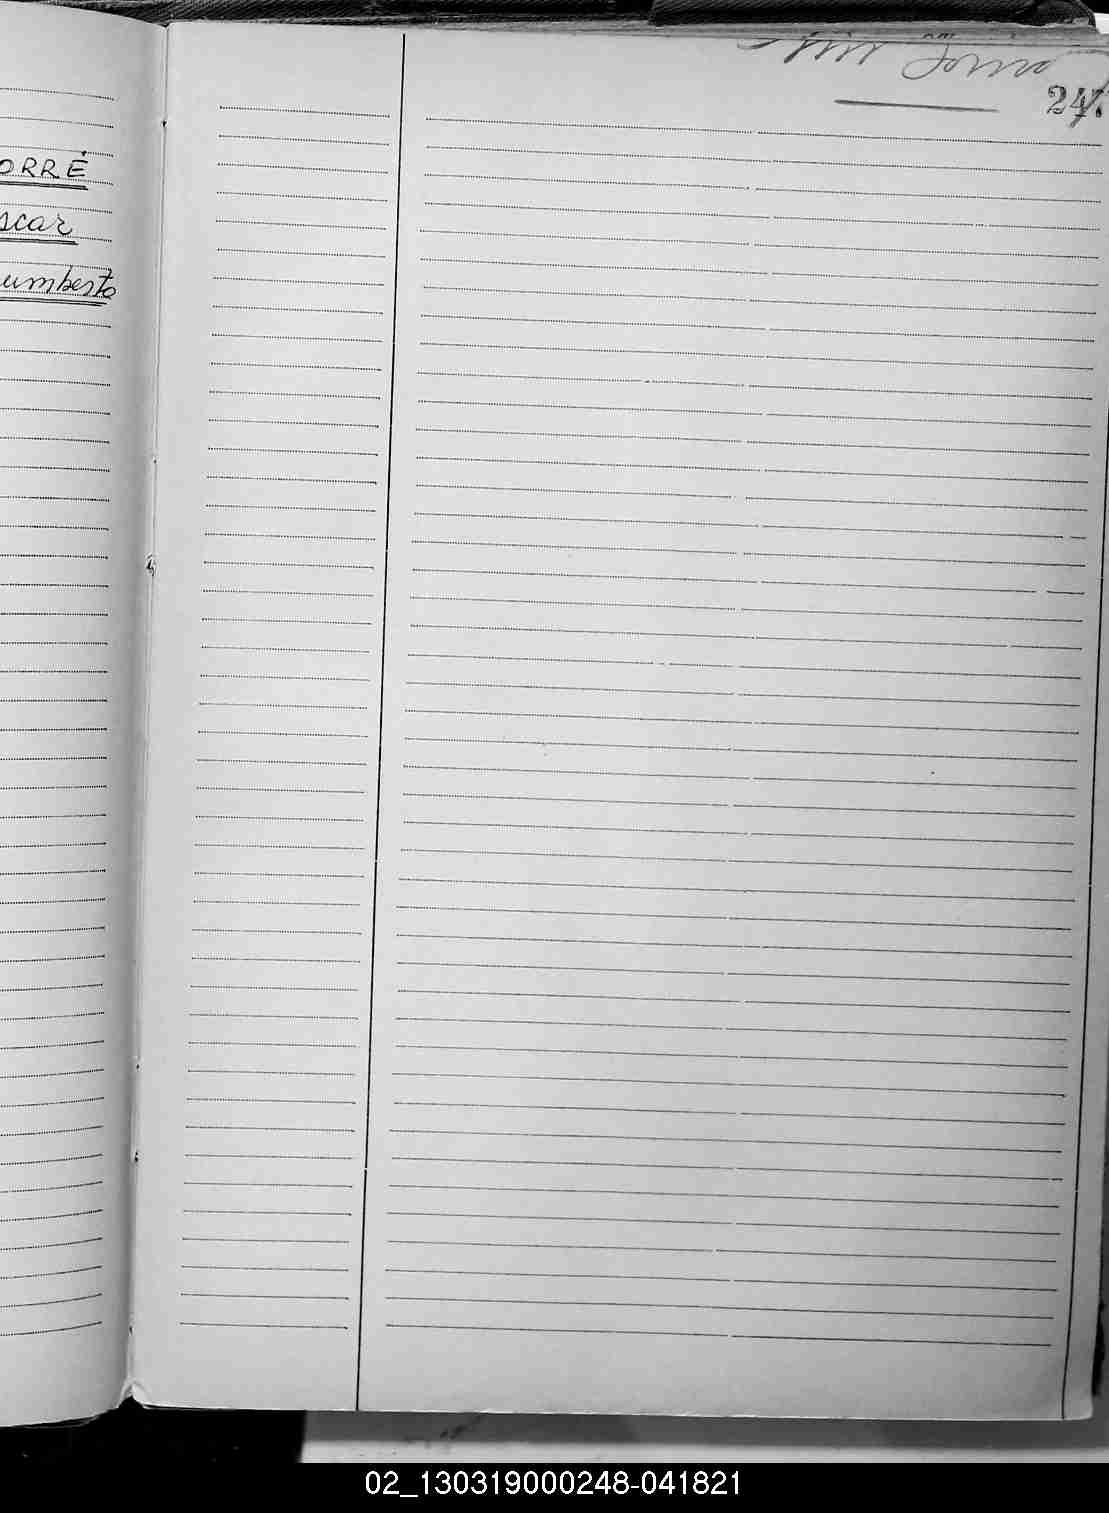 ORRÉ
scar
umberto
247.
02_130319000248-041821